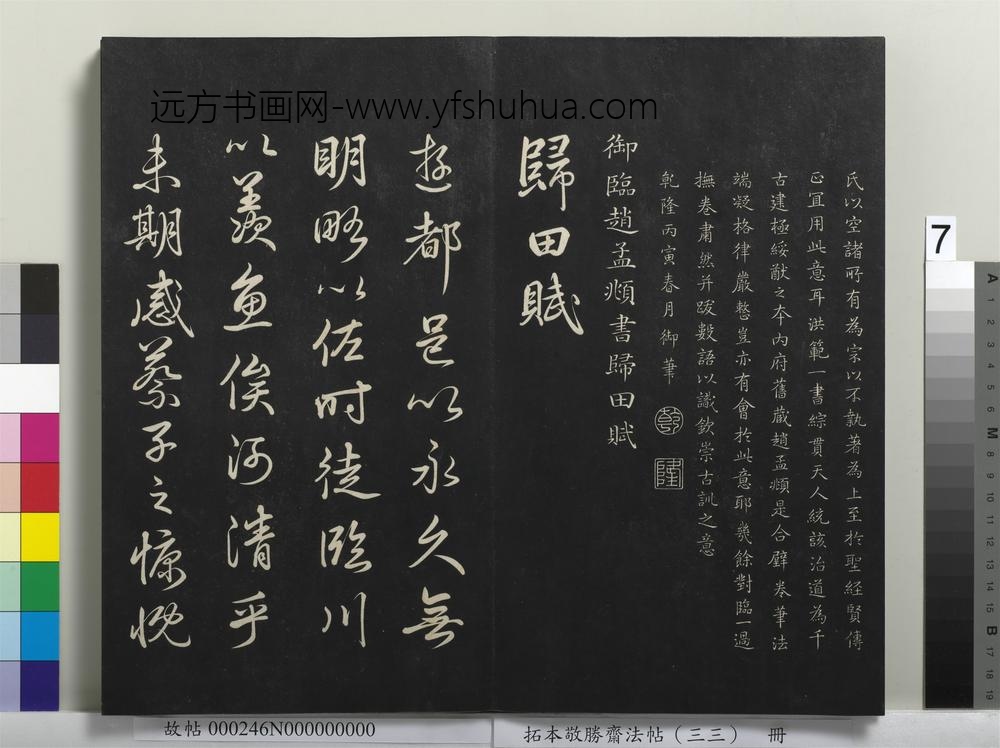 远方书画网-www.yfshuhua.com
氏以空諸所有為宗以不執著為上至於聖經賢傳
正宜用此意耳洪範一書綜貫天人統該治道為千
古建極綏猷之本內府舊藏趙孟頫是合璧卷筆法
端凝格律嚴整豈亦有會於此意耶幾餘對臨一過
撫卷肅然并跋數語以識欽崇古訓之意
乾隆丙寅春月御筆
乾
隆
御臨趙孟頫書歸田賦
歸田賦
遊都邑以永久無
明略以佐時徒臨川
以羨魚俟河清乎
未期感蔡子之慷慨
7
故帖 000246N000000000
拓本敬勝齋法帖(三三) 冊
A 1 2 3 4 5 6 M 8 9 10 11 12 13 14 15 B 17 18 19